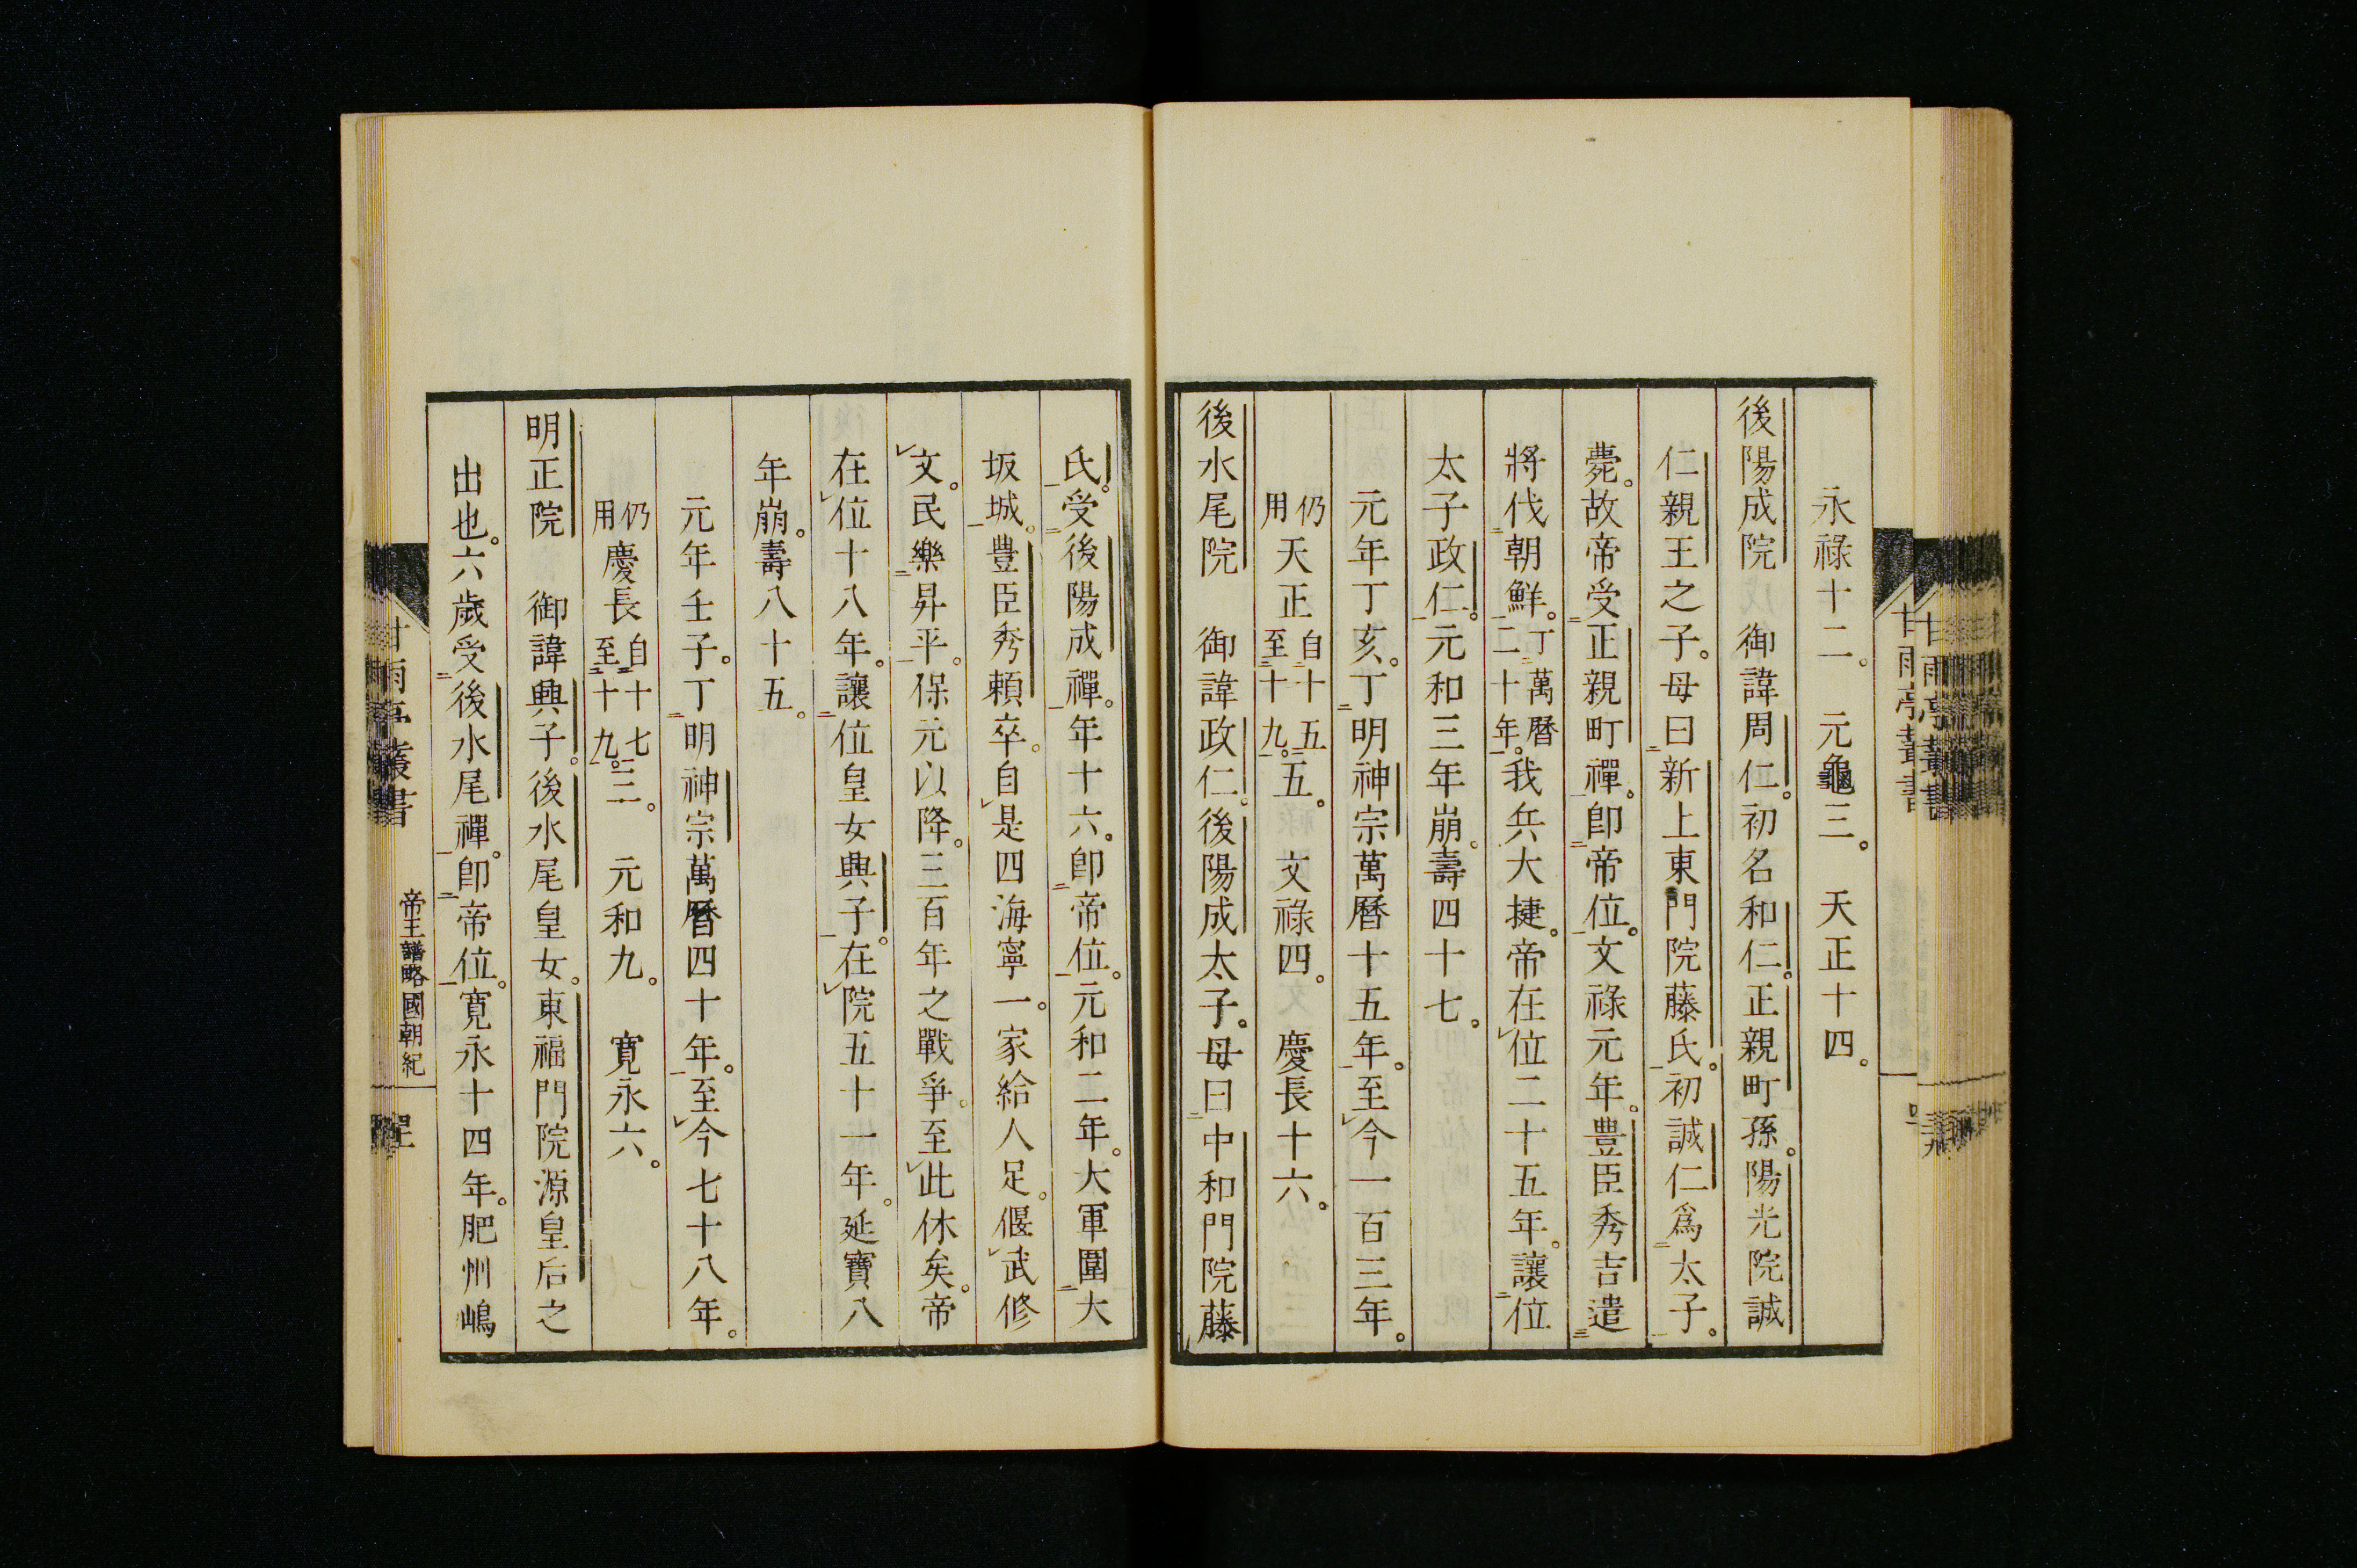 永祿十二。元龜三。天正十四。
後陽成院　御諱周仁。初名和仁。正親町孫。陽光院誠
仁親王之子。母曰新上東門院藤氏。初誠仁爲太子。
薨。故帝受正親町禪。卽帝位。文祿元年。豊臣秀吉遣
將伐朝鮮。丁萬曆二十年。我兵大捷。帝在位二十五年。讓位
太子政仁。元和三年崩。壽四十七。
元年丁亥。丁明神宗萬曆十五年。至今一百三年。
仍用天正自十五至十九。五。文祿四。慶長十六。
後水尾院　御諱政仁。後陽成太子。母曰中和門院藤
氏。受後陽成禪。年十六。卽帝位。元和二年。大軍圍大
坂城。豊臣秀頼卒。自是四海寧一。家給人足。偃武修
文。民樂昇平。保元以降。三百年之戰爭。至此休矣。帝
在位十八年。讓位皇女興子。在院五十一年。延寶八
年崩。壽八十五。
元年壬子。丁明神宗萬曆四十年。至今七十八年。
仍用慶長自十七至十九。三。元和九。寛永六。
明正院　御諱興子。後水尾皇女。東福門院源皇后之
出也。六歲受後水尾禪。卽帝位。寛永十四年。肥州嶋
甘雨亭叢書
帝王譜略國朝紀
甘雨亭叢書